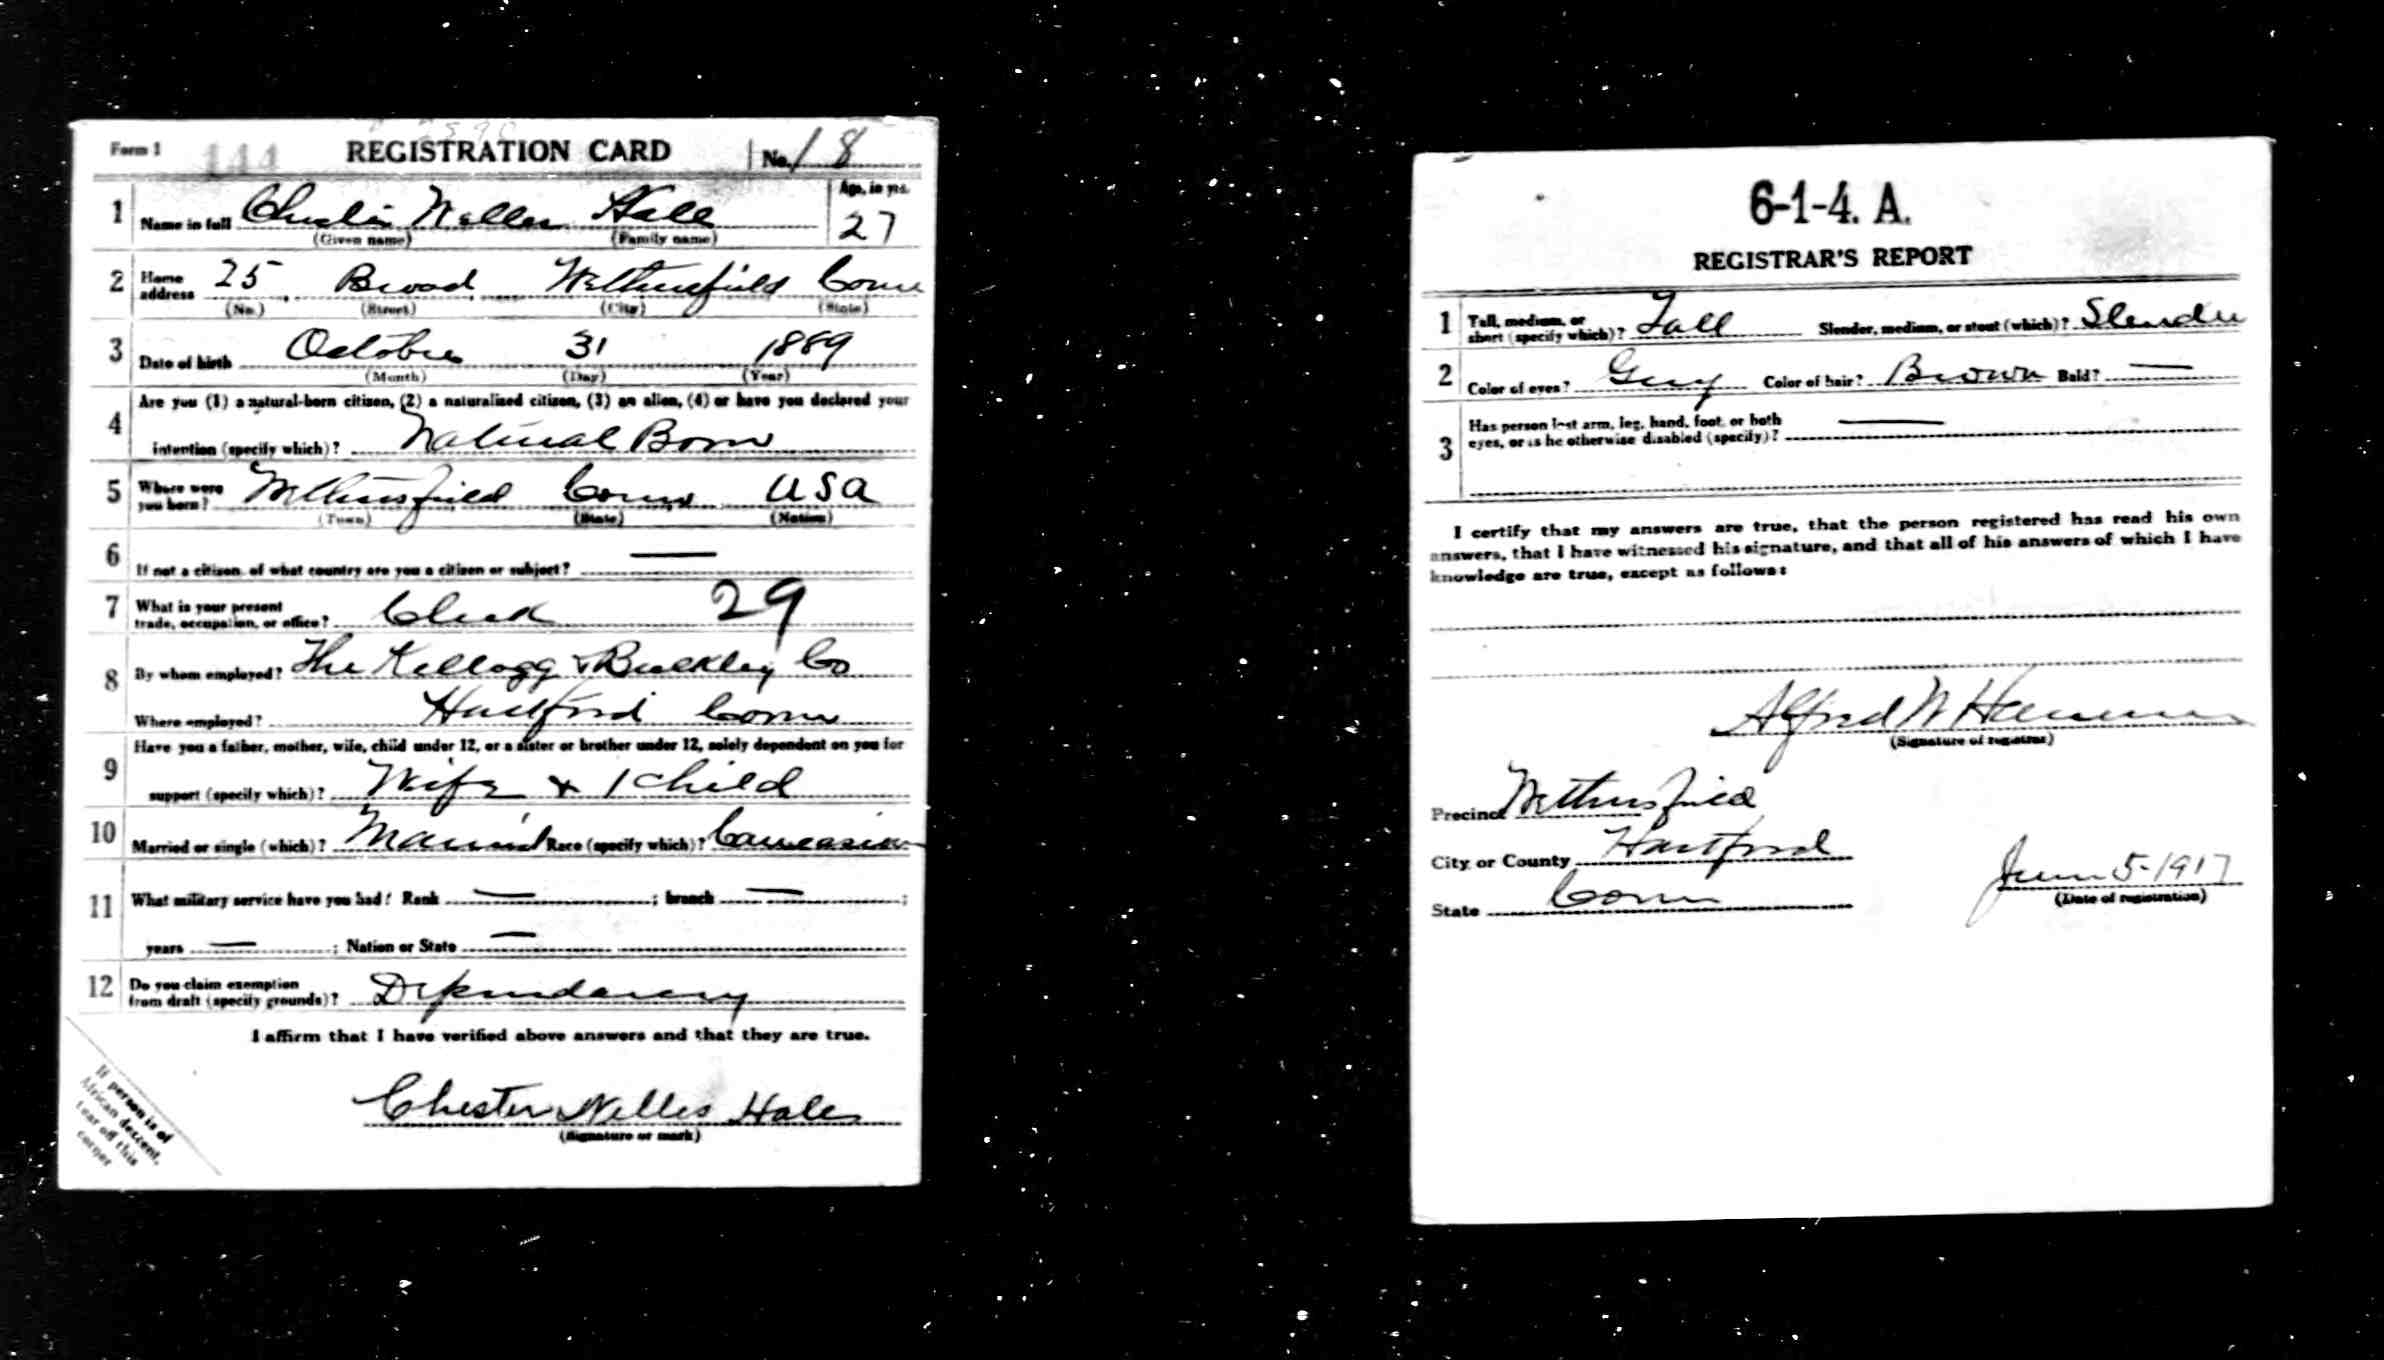 Form 1 144 REGISTRATION CARD No. 18
1 Name in full Chester Welles Hale Age, in yrs. 27
(Given name) (Family name)
2 Home address 25 Broad Wethersfield Conn
(No.) (Street) (City) (State)
3 Date of birth October 31 1889
(Month) (Day) (Year)
4 Are you (1) a natural-born citizen, (2) a naturalized citizen, (3) an alien, (4) or have you declared your
intention (specify which)? Natural Born
5 Where were you born? Wethersfield Conn USA
(Town) (State) (Nation)
6 If not a citizen, of what country are you a citizen or subject? —
7 What is your present
trade, occupation, or office? Clerk 29
8 By whom employed? The Kellogg & Bulkley Co
Where employed? Hartford Conn
9 Have you a father, mother, wife, child under 12, or a sister or brother under 12, solely dependent on you for
support (specify which)? Wife & 1 child
10 Married or single (which)? Married Race (specify which)? Caucasian
11 What military service have you had? Rank — ; branch — ;
years — ; Nation or State —
12 Do you claim exemption
from draft (specify grounds)? Dependency
I affirm that I have verified above answers and that they are true.
Chester Welles Hale
(Signature or mark)
If person is of
African descent,
tear off this
corner
6-1-4. A.
REGISTRAR'S REPORT
1 Tall, medium, or
short (specify which)? Tall Slender, medium, or stout (which)? Slender
2 Color of eyes? Grey Color of hair? Brown Bald? —
3 Has person lost arm, leg, hand, foot, or both
eyes, or is he otherwise disabled (specify)? —
I certify that my answers are true, that the person registered has read his own
answers, that I have witnessed his signature, and that all of his answers of which I have
knowledge are true, except as follows:
Alfred W Hanmer
(Signature of registrar)
Precinct Wethersfield
City or County Hartford
State Conn
June 5-1917
(Date of registration)